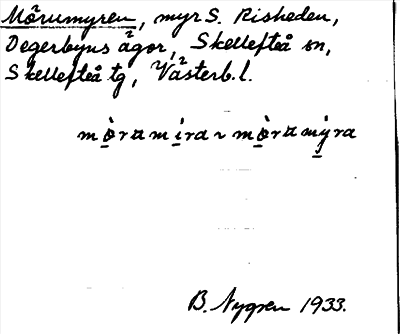 Mörumyren, myr S. Risheden,
Degerbyns ägor, Skellefteå sn,
Skellefteå tg, Västerb. l.
mòramíra ~ mòramýra
B. Nygren 1933.